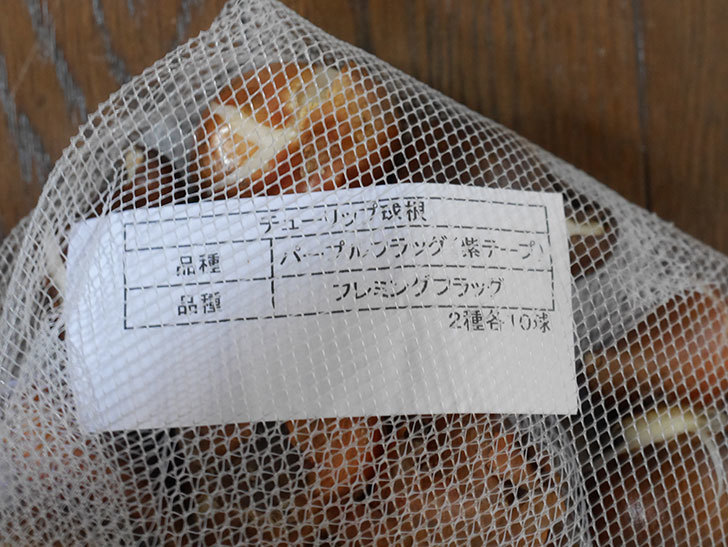 チューリップ球根
品種 パープルフラッグ(紫テープ)
品種 フレミングフラッグ
2種各10球